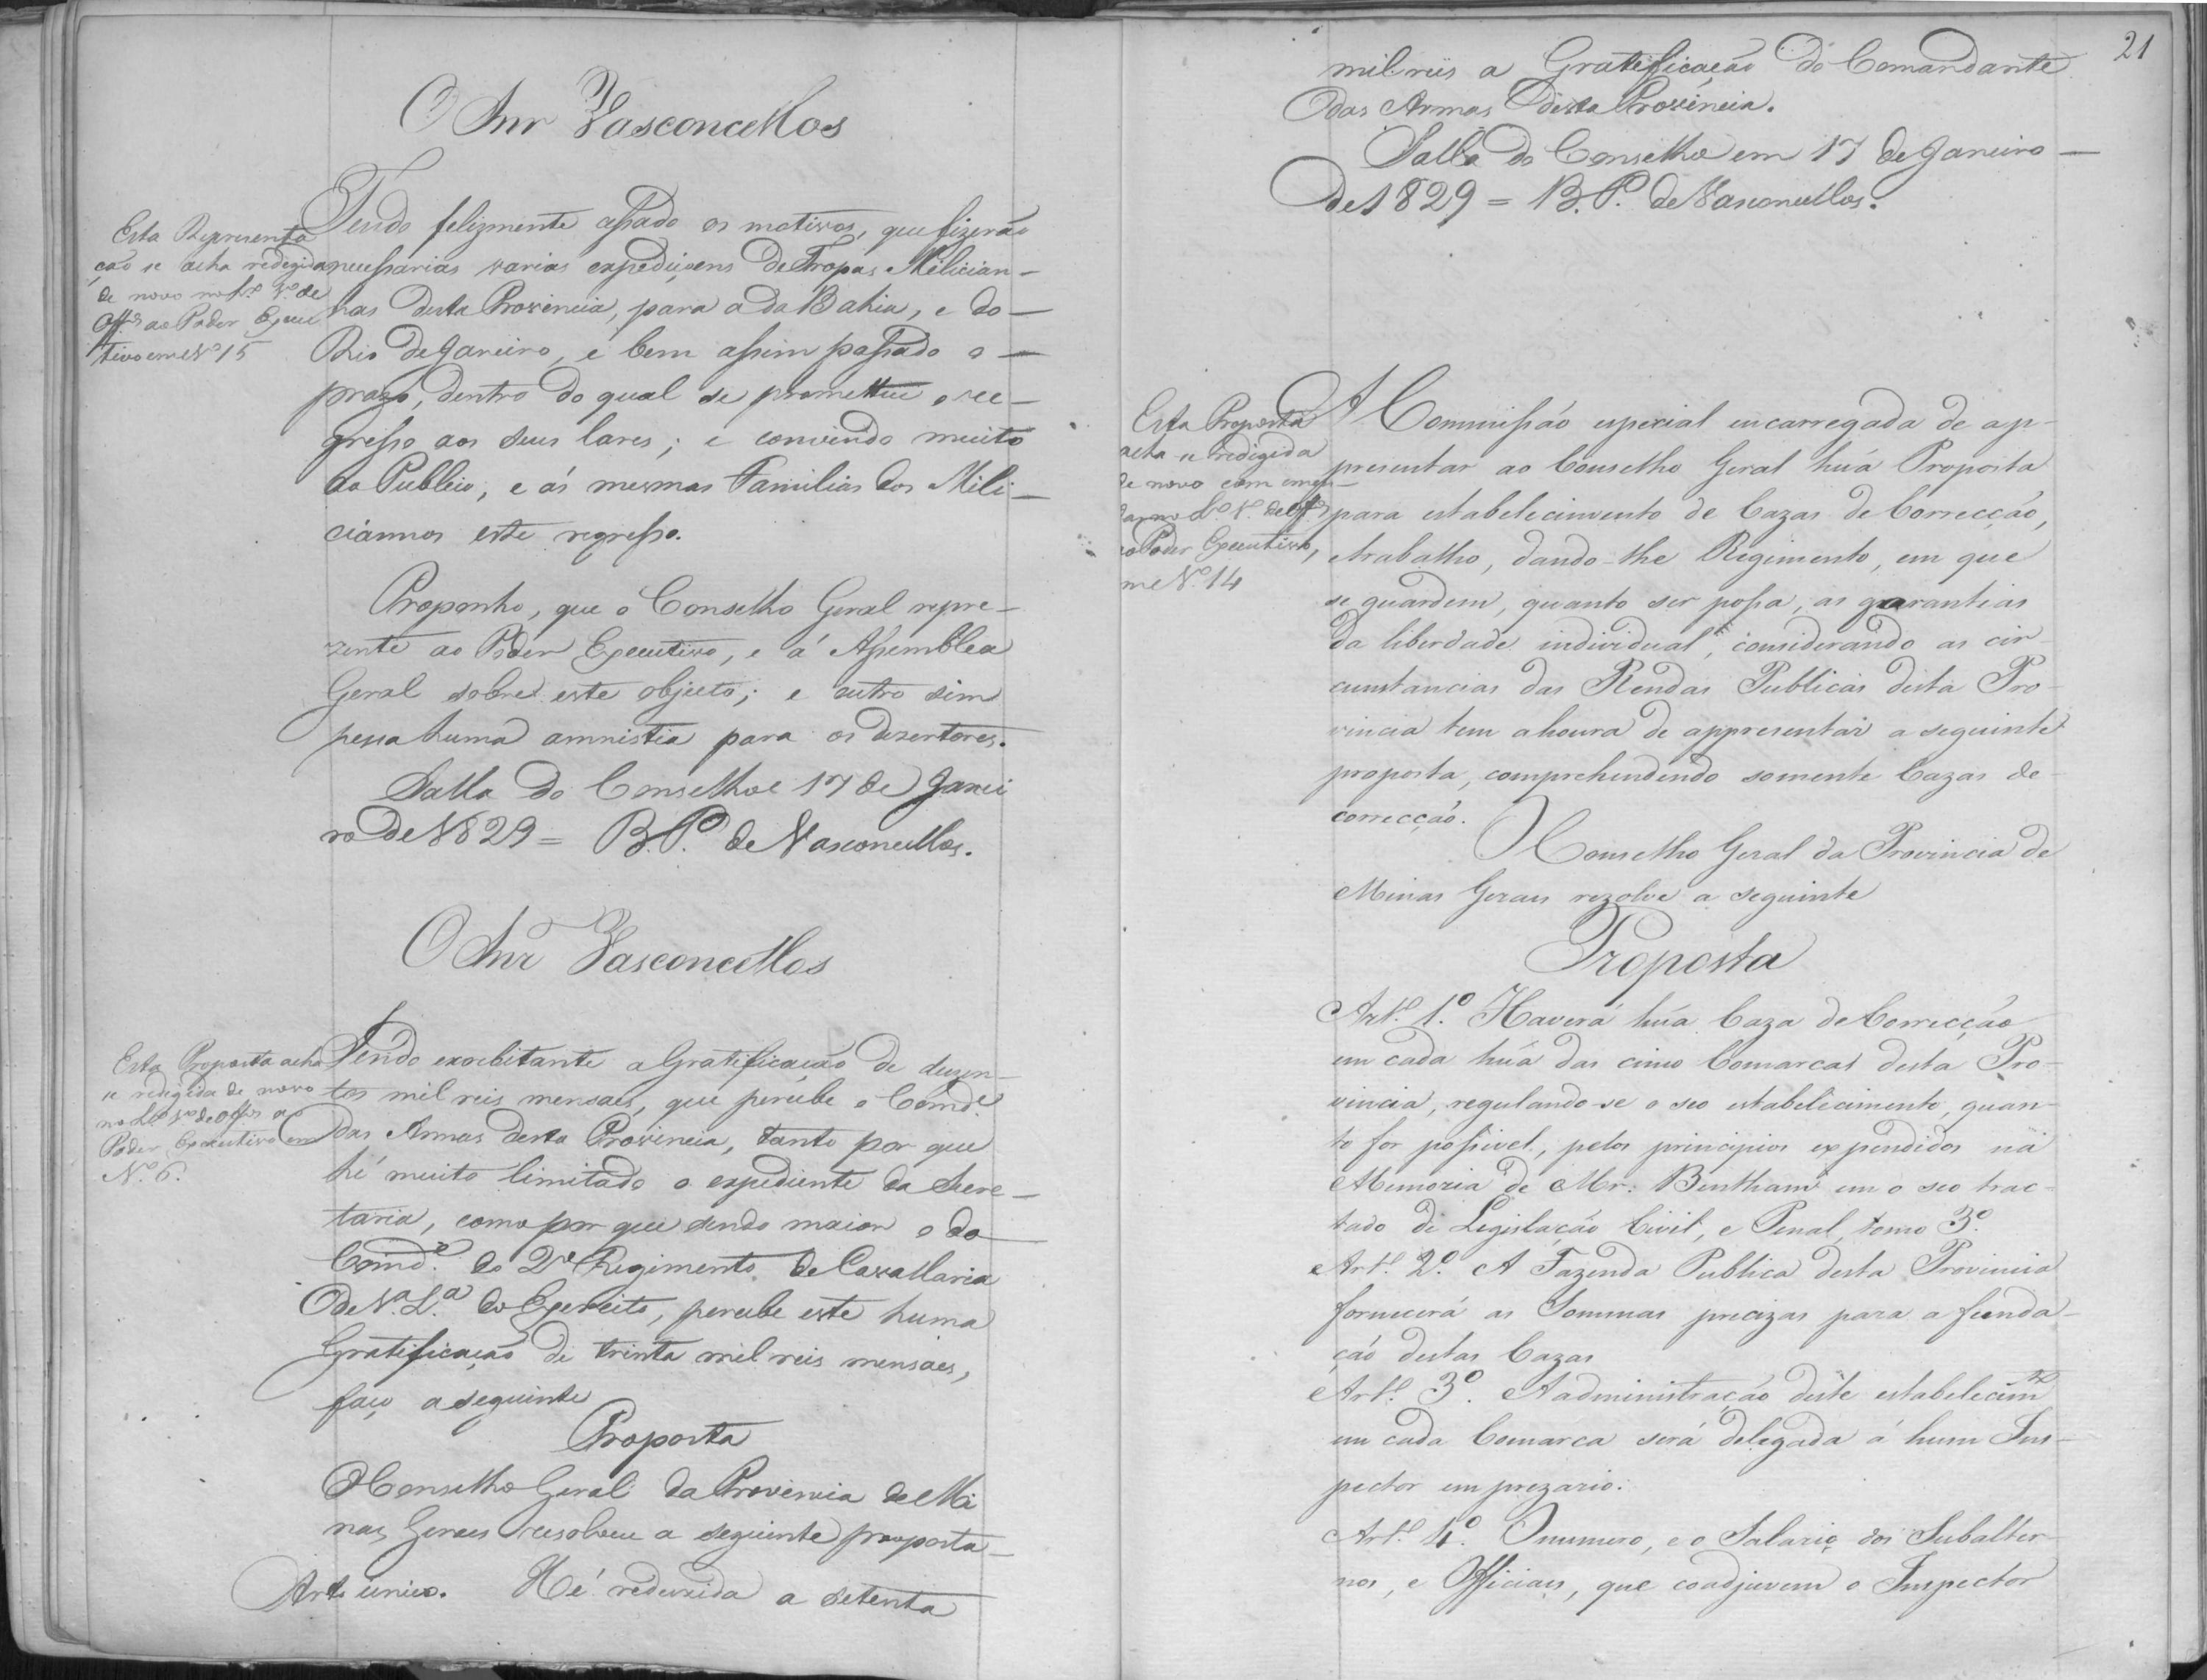 O Snr Vasconcellos
Esta Representa
ção se acha redigida
de novo no L.º 1.º de
Off.os ao Poder Execu
tivo em N.º 15
Tendo felizmente assado os motivos, que fizerão
necessarias varias expedições de Tropas Milician-
nas desta Provincia, para a da Bahia, e do
Rio de Janeiro, e bem assim passado o
prazo, dentro do qual se prometteu o re-
gresso aos seus lares; e convindo muito
ao Publico, e ás mesmas Familias dos Mili-
ciannos este regresso.
Proponho, que o Conselho Geral repre-
zente ao Poder Executivo, e á Assemblea
Geral sobre este objecto; e outro sim
pessa huma amnistia para os dezertores.
Salla do Conselho 17 de Janei
ro de 1829 = B. P. de Vasconcellos.
O Snr Vasconcellos
Esta Proposta acha
se redigida de novo
no L.º 1.º de Off.os ao
Poder Executivo em
N.º 6.
Sendo exorbitante a Gratificação de duzen-
tos mil reis mensaes, que percebe o Comd.e
das Armas desta Provincia, tanto por que
hé muito limitado o expediente da Secre-
taria, como por que sendo maior o do
Comd.e do 2.º Regimento de Cavallaria
de 1.ª L.ª do Exercito, percebe este huma
Gratificação de trinta mil reis mensaes,
faço a seguinte
Proposta
O Conselho Geral da Provincia de Mi
nas Geraes resolveu a seguinte proposta
Art. unico. Hé reduzida a setenta
21
mil reis a Gratificação do Comandante
das Armas desta Provincia.
Salla do Conselho em 17 de Janeiro
de 1829 = B. P. de Vasconcellos.
Esta Proposta
acha se redigida
de novo com emen-
das no L.º 1.º de Off.os
ao Poder Executivo,
em e N.º 14
A Commissão especial encarregada de ap-
presentar ao Conselho Geral hũa Proposta
para estabelecimento de Cazas de Correcção,
e trabalho, dando-lhe Regimento, em que
se guardem, quanto ser possa, as garantias
da liberdade individual, considerando as cir-
cunstancias das Rendas Publicas desta Pro-
vincia tem a honra de appresentar a seguinte
proposta, comprehendendo somente Cazas de
correcção.
O Conselho Geral da Provincia de
Minas Geraes rezolve a seguinte
Proposta
Art.º 1.º Haverá hũa Caza de Correcção
em cada hũa das cinco Comarcas desta Pro-
vincia, regulando-se o seo estabelecimento, quan-
to for possivel, pelos principios expendidos na
Memoria de Mr. Bentham em o seo trac-
tado de Legislação Civil, e Penal, tomo 3.º
Art.º 2.º A Fazenda Publica desta Provincia
fornecerá as Sommas precizas para a funda-
ção destas Cazas
Art.º 3.º A administração deste estabelecim.to
em cada Comarca será delegada á hum Ins-
pector emprezario.
Art.º 4.º O numero, e o Salario dos Subalter-
nos, e Officiaes, que coadjuvem o Inspector